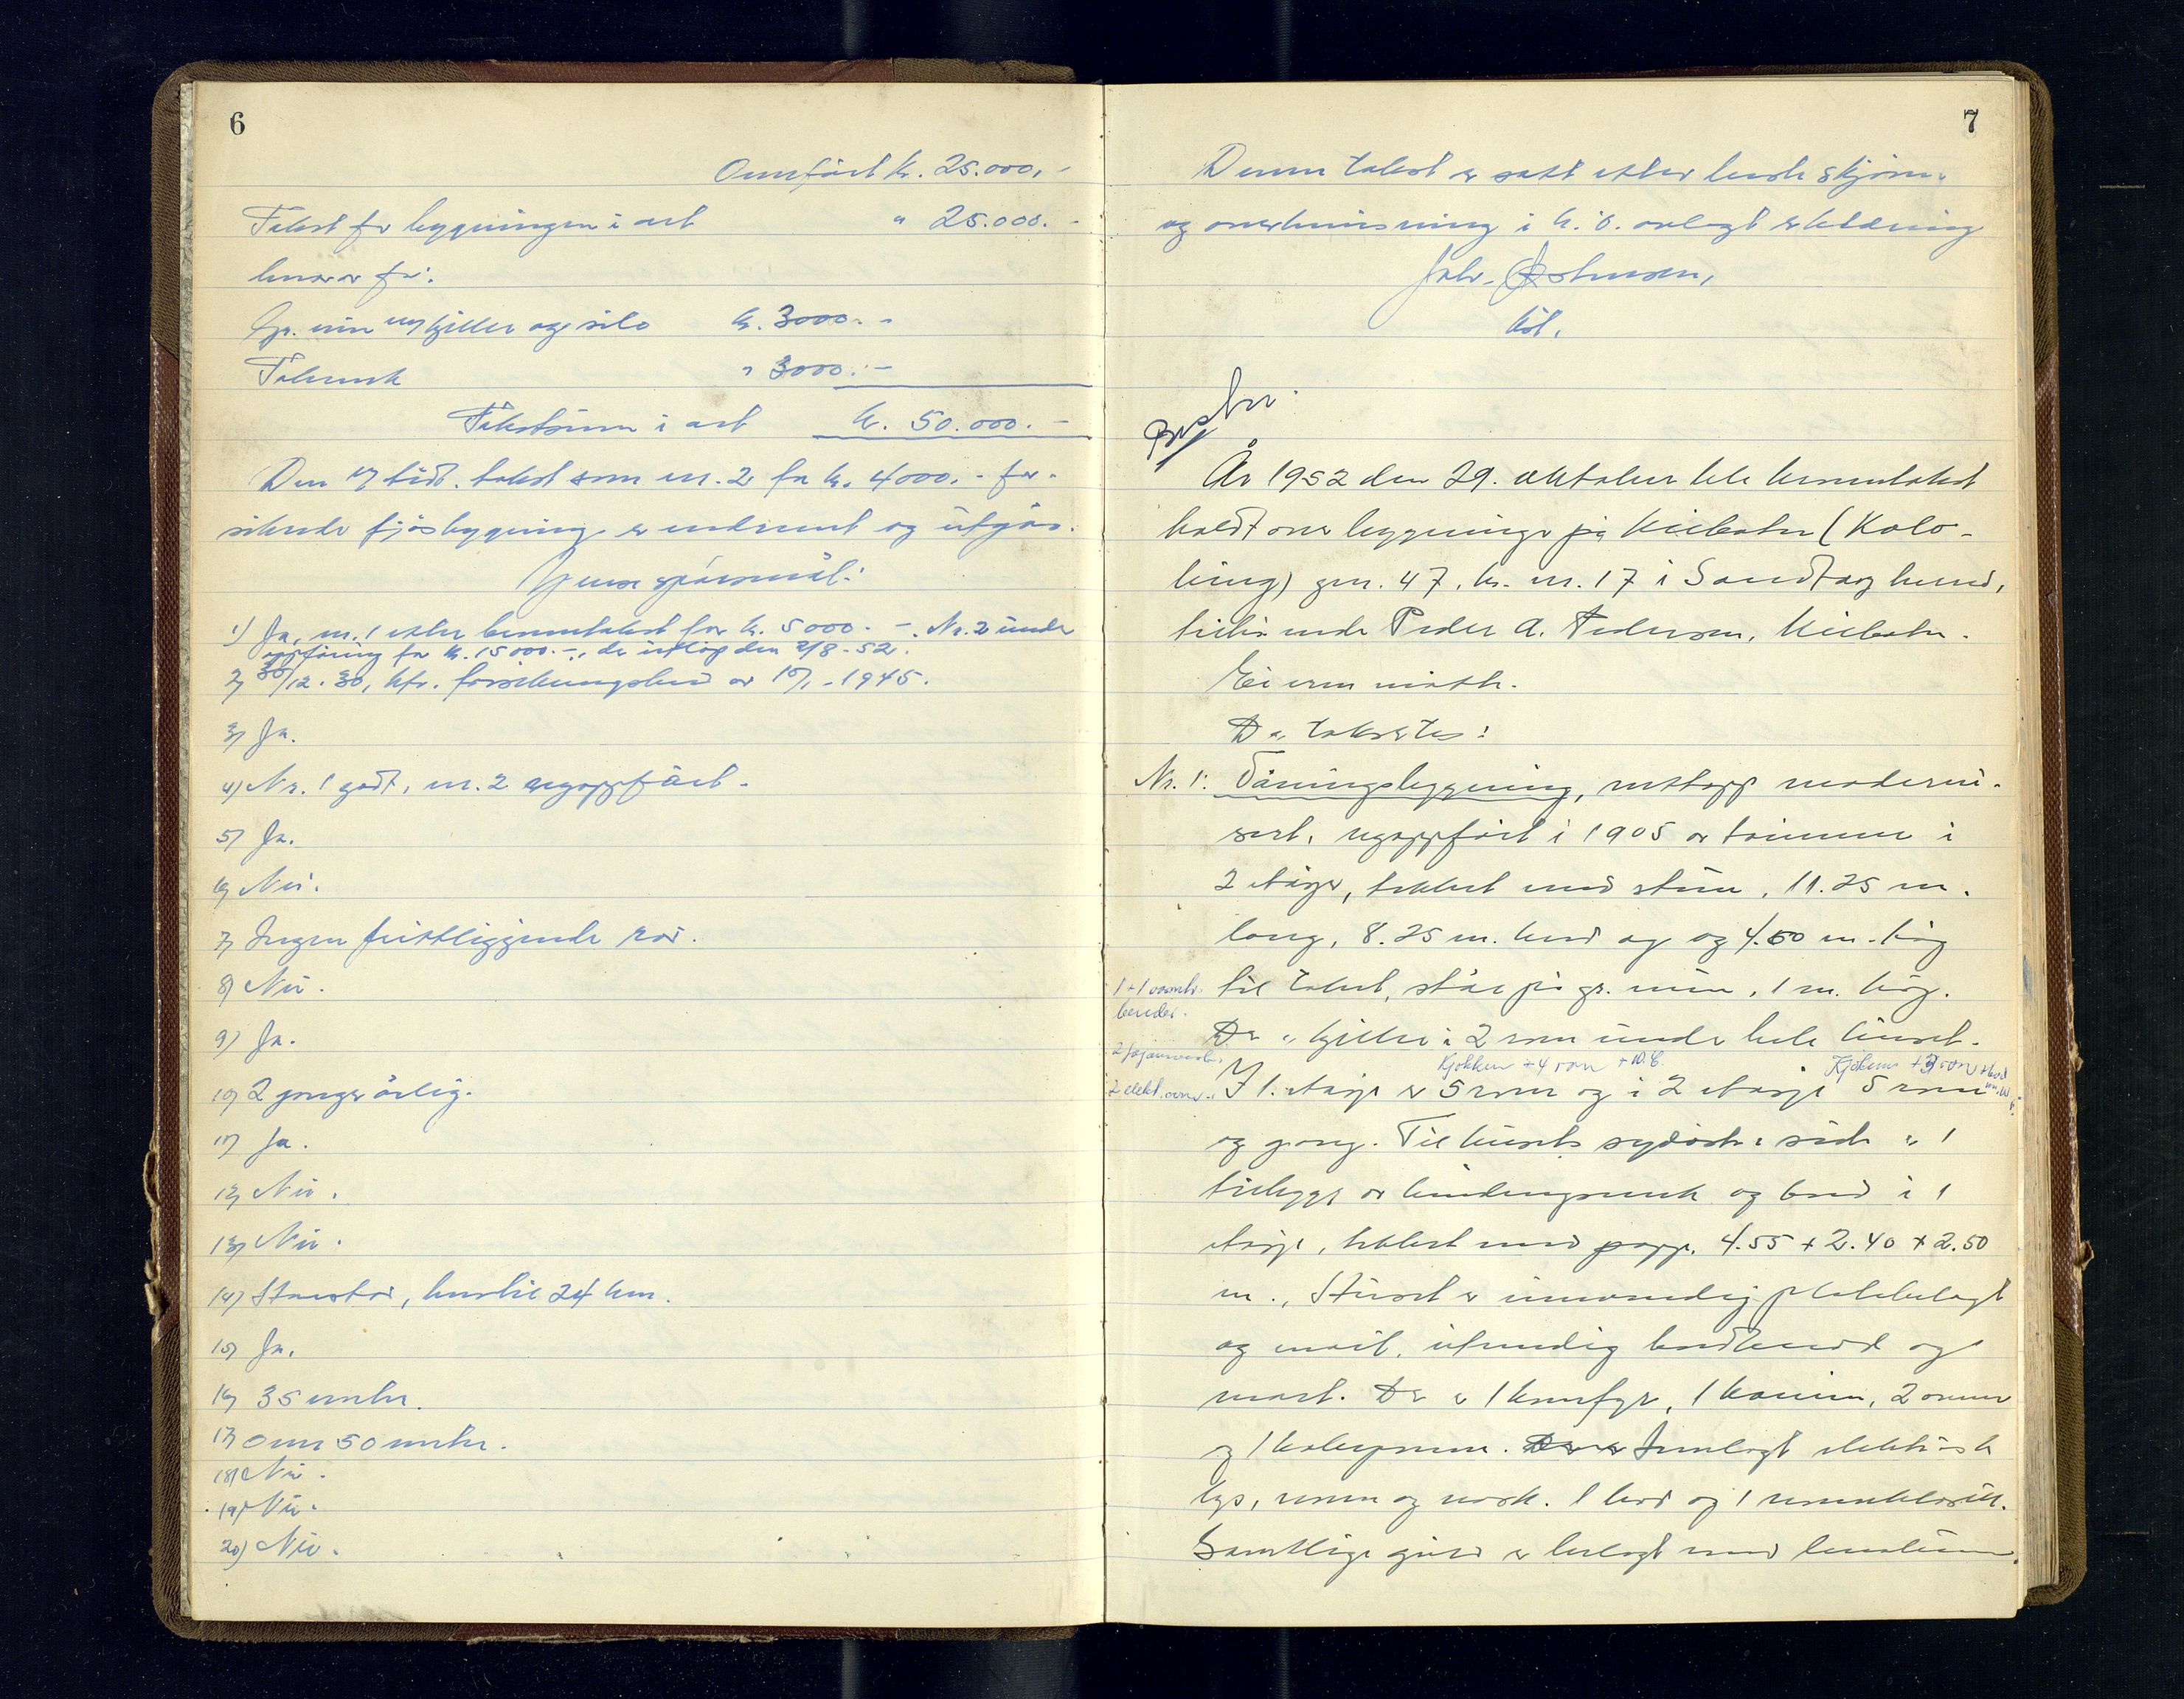 6
Overført kr. 25.000.-
Takst for bygningen i alt " 25.000.-
herav for:
Gr. mur m/ kjeller og silo kr. 3000.-
Takverk " 3000.-
Takstsum i alt kr. 50.000.-
Den v/ tidl. takst som nr. 2 for kr. 4000.- for-
sikrede fjøsbygning er nedrevet og utgår.
Genr. spørsmål:
1) Ja, nr. 1 etter branntakst for kr. 5000.-. Nr. 2 under
oppføring for kr. 15000.-, de utløp den 2/8-52.
2) 30/12.30, kfr. forsikringsbud av 15/1-1945.
3) Ja.
4) Nr. 1 godt, nr. 2 nyoppført.
5) Ja.
6) Nei.
7) Ingen fritliggende rør.
8) Nei.
9) Ja.
10) 2 ganger årlig.
11) Ja.
12) Nei.
13) Nei.
14) Harstad, knr til 24 km.
15) Ja.
16) 35 meter.
17) Over 50 meter.
18) Nei.
19) Nei.
20) Nei.
7
Denne takst er satt etter beste skjønn
og overbevisning i h. t. avlagt erklæring
Joh. Johnsen,
År 1952 den 29. oktober ble branntakst
holdt over bygninger på Kilbotn (Kolo-
ling) gnr. 47, br. nr. 17 i Sandtorg herred,
tilhørende Peder A. Pedersen, Kilbotn.
Eieren møtte.
Da takseres:
Nr. 1: Våningsbygning, nettopp moderni-
sert, nyoppført i 1905 av tømmer i
2 etager, tekket med stein, 11.25 m.
lang, 8.25 m. bred og og 4.50 m. høg
til taket, står på gr. mur, 1 m. høg.
1+1 varmtv.
bereder.
Der er kjeller i 2 rom under hele huset.
Kjøkken + 4 rom + W.C. Kjøkken + 3 rom + bad
2 elekt. ovner. I 1. etage er 5 rom og i 2 etage 5 rom
og gang. Til husets sydøstre side er 1
tilbygg av bindingsverk og bord i 1
etage, tekket med papp, 4.55 + 2.40 + 2.50
m., Huset er innvendig platebelagt
og malt, utvendig bordkledd og
malt. Der er 1 komfyr, 1 kamin, 2 ovner
og 1 kokegruve. Der er Innlagt elektrisk
lys, vann og vask. 1 bad og 1 vannklosett.
Samtlige gulv er belagt med linoleum.